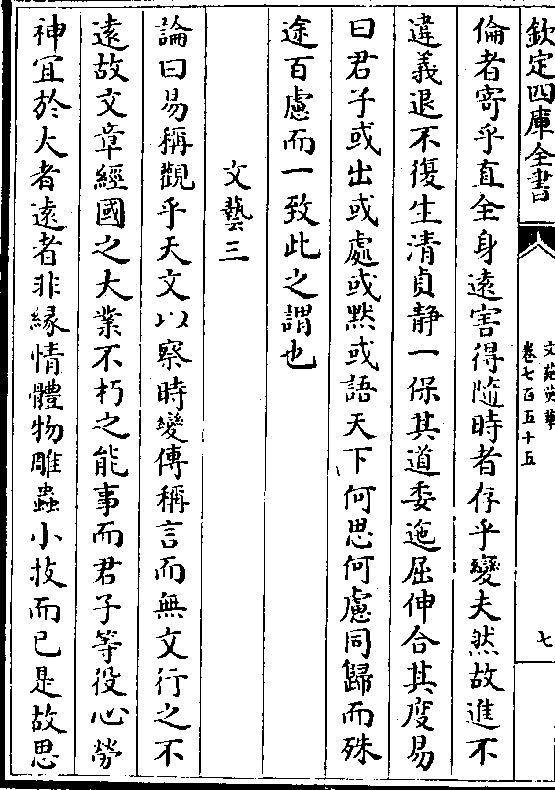 欽定四庫全書
文苑英華
卷七百五十五
七
倫者寄乎直全身遠害得隨時者存乎變夫然故進不
違義退不復生清貞静一保其道委迤屈伸合其度易
曰君子或出或處或黙或語天下何思何慮同歸而殊
途百慮而一致此之謂也
文藝三
論曰易稱觀乎天文以察時變傳稱言而無文行之不
遠故文章經國之大業不朽之能事而君子等役心勞
神宜於大者遠者非緣情體物雕蟲小技而已是故思